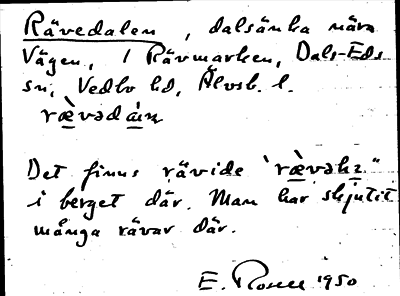 Rävedalen, dalsänka nära
Vägen, i Rävmarken, Dals-Eds
sn, Vedbo hd, Älvsb. l.
Det finns rävide
i berget där. Man har skjutit
många rävar där.
E. 1950